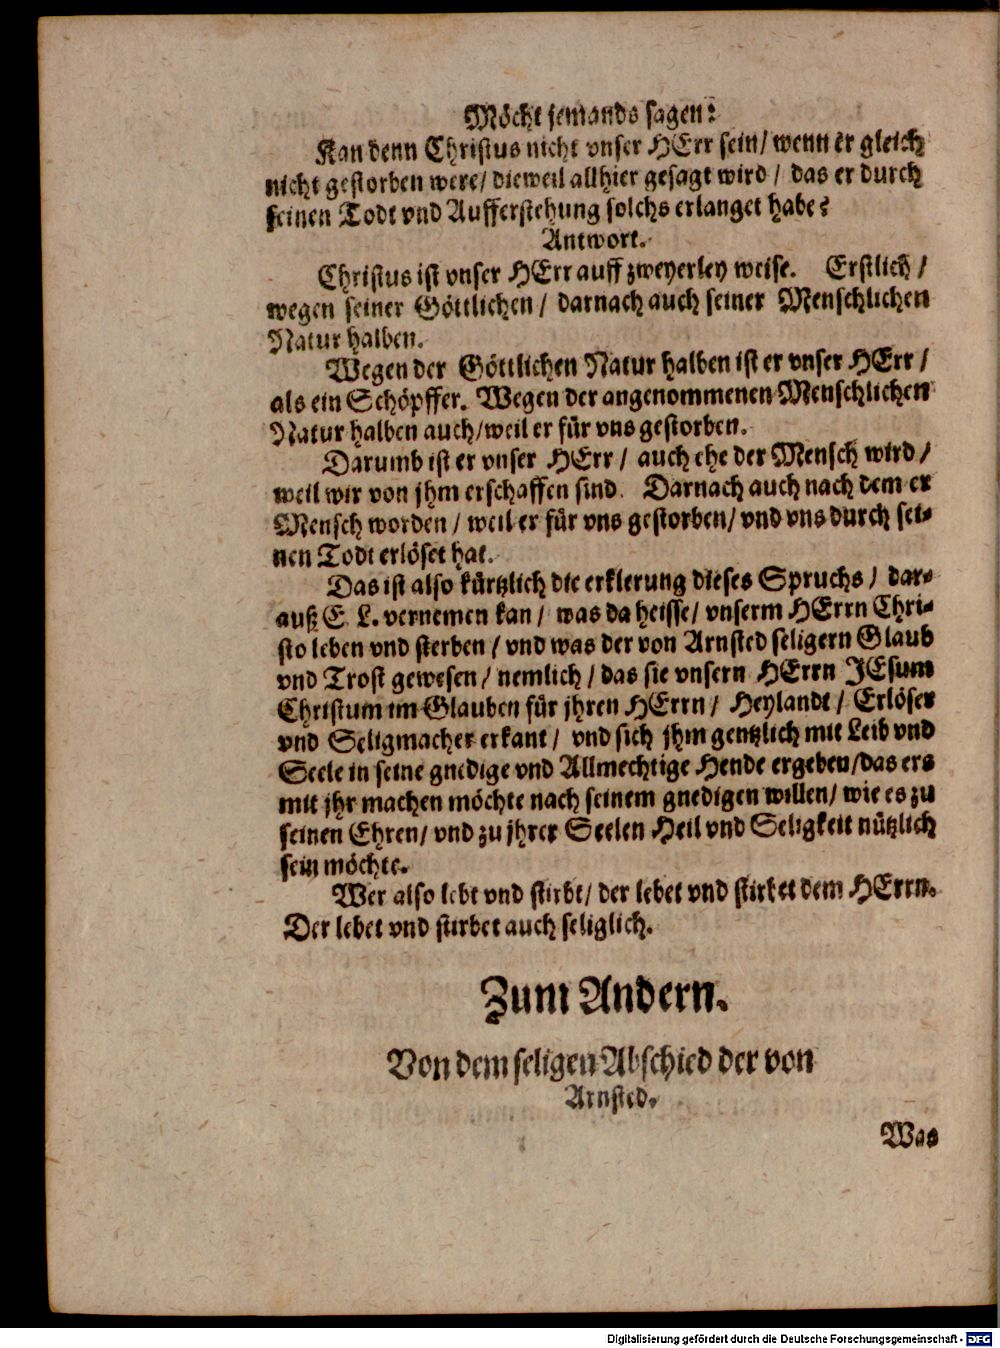 Möcht jemands sagen:
Kan denn Christus nicht vnser HErr sein/ wenn er gleich
nicht gestorben were/ dieweil allhier gesagt wird / das er durch
seinen Todt vnd Aufferstehung solchs erlanget habe?
Antwort.
Christus ist vnser HErr auff zweyerley weise. Erstlich /
wegen seiner Göttlichen / darnach auch seiner Menschlichen
Natur halben.
Wegen der Göttlichen Natur halben ist er vnser HErr /
als ein Schöpffer. Wegen der angenommenen Menschlichen
Natur halben auch/weil er für vns gestorben.
Darumb ist er vnser HErr / auch ehe der Mensch wird /
weil wir von jhm erschaffen sind. Darnach auch nach dem er
Mensch worden / weil er für vns gestorben/ vnd vns durch sei-
nen Todt erlöset hat.
Das ist also kürtzlich die erklerung dieses Spruchs / dar-
auß E. L. vernemen kan / was da heisse/ vnserm HErrn Chri-
sto leben vnd sterben / vnd was der von Arnsted seligern Glaub
vnd Trost gewesen / nemlich / das sie vnsern HErrn JEsum
Christum im Glauben für jhren HErrn / Heylandt / Erlöser
vnd Seligmacher erkant / vnd sich jhm gentzlich mit Leib vnd
Seele in seine gnedige vnd Allmechtige Hende ergeben/das ers
mit jhr machen möchte nach seinem gnedigen willen/ wie es zu
seinen Ehren/ vnd zu jhrer Seelen Heil vnd Seligkeit nützlich
sein möchte.
Wer also lebt vnd stirbt/ der lebet vnd stirbet dem HErrn.
Der lebet vnd stirbet auch seliglich.
Zum Andern.
Von dem seligen Abschied der von
Arnsted.
Was
Digitalisierung gefördert durch die Deutsche Forschungsgemeinschaft - DFG